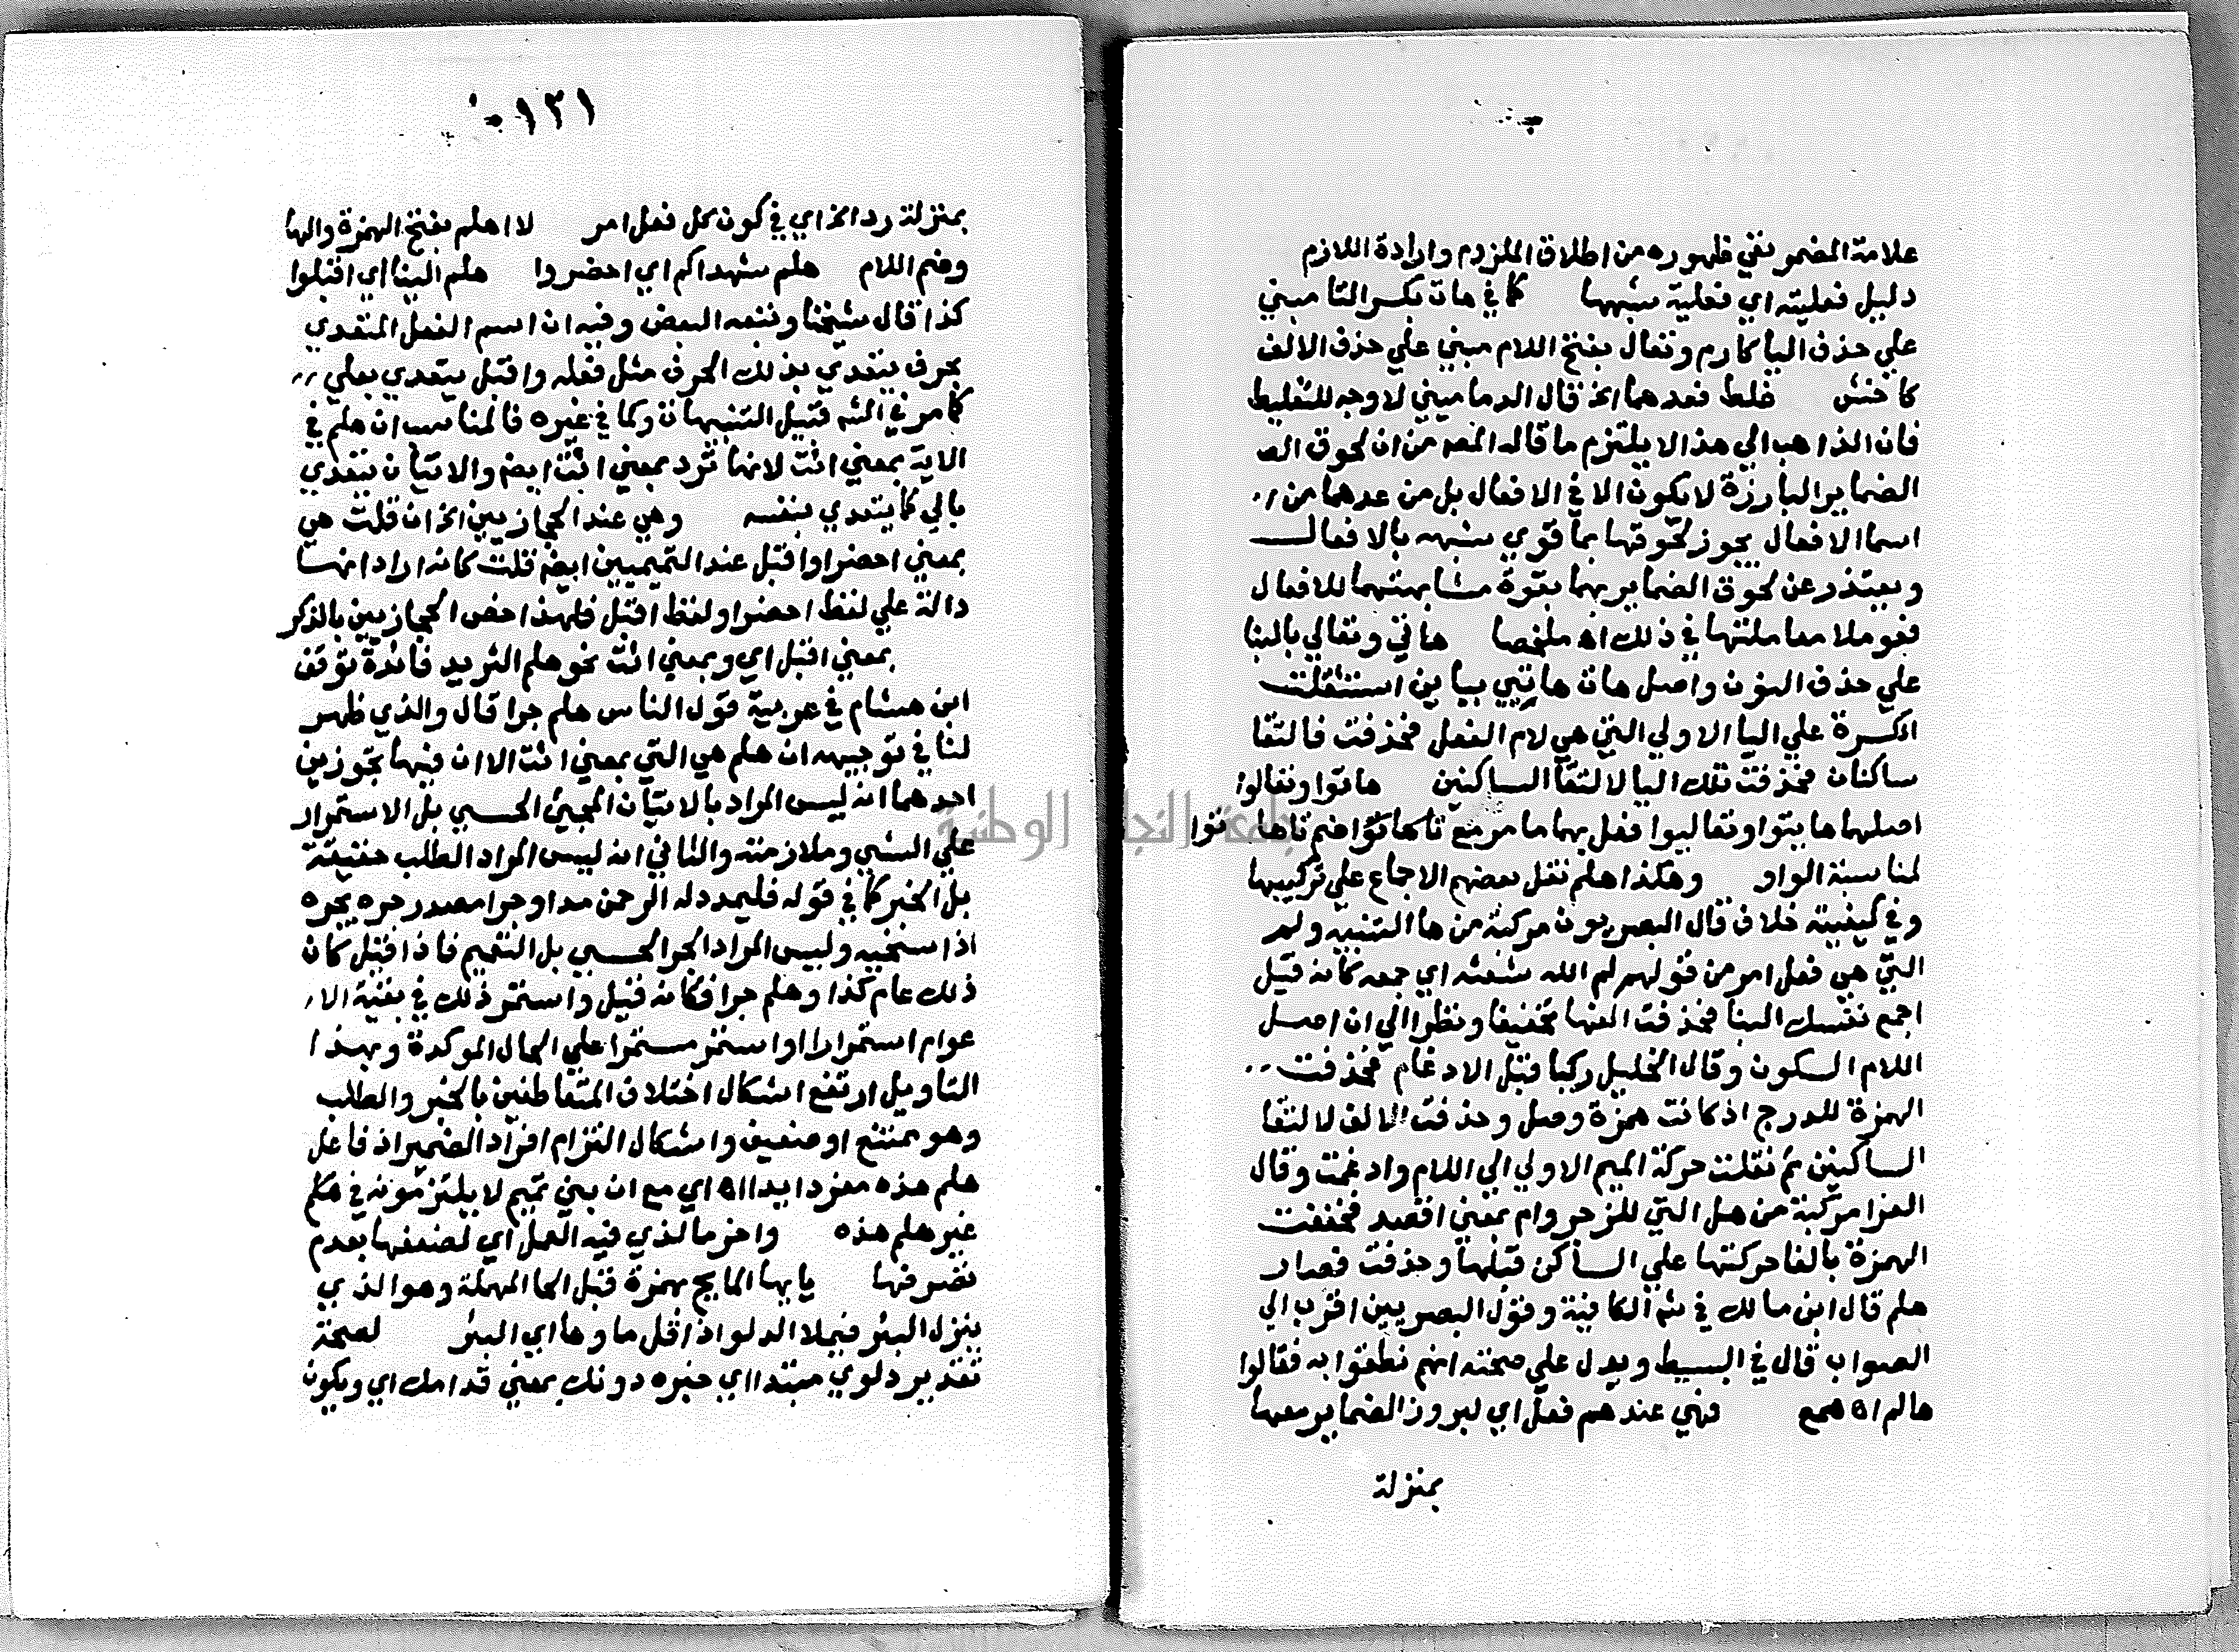 علامة المضمر نفي ظهوره من اطلاق الملزوم وارادة اللازم
دليل فعليته اي فعلية شبهها كما في هات بكسر التا مبني
علي حذف اليا كارم وتعال بفتح اللام مبني علي حذف الالف
كاخش غلط فعدهما الخ قال الدماميني لا وجه للتغليط
فان الذاهب الي هذا لا يلتزم ما قاله المصه من ان لحوق الصـ
الضماير البارزة لا يكون الا في الافعال بل من عدهما من
اسما الافعال يجوز لحوقها بما قوي شبهه بالافعال
ويعتذر عن لحوق الضماير بهما بقوة مشابهتهما للافعال
فعوملا معاملتها في ذلك اه ملخصا هاتي وتعالي بالبنا
علي حذف النون واصل هات هاتيي بيايين استثقلت
الكسرة علي اليا الاولي التي هي لام الفعل فحذفت فالتقا
ساكنان فحذفت تلك اليا لالتقا الساكنين هاتوا وتعالوا
اصلهما هاتيوا وتعاليوا فعل بهما ما مر مع تا هاتوا ضم تا هاتوا
لمناسبة الواو وهكذا هلم نقل بعضهم الاجماع علي تركيبها
وفي كيفيته خلاف قال البصريون مركبة من ها التنبيه ولم
التي هي فعل امر من قولهم لم الله شعثه اي جمعه كانه قيل
اجمع نفسك الينا فحذفت الفها تخفيفا ونظرا الي ان اصل
اللام السكون وقال الخليل ركبا قبل الادغام فحذفت
الهمزة للدرج اذ كانت همزة وصل وحذفت الالف لالتقا
الساكنين ثم نقلت حركة الميم الاولي الي اللام وادغمت وقال
الفرا مركبة من هل التي للزجر وام بمعني اقصد فخففت
الهمزة بالقا حركتها علي الساكن قبلها وحذفت فصار
هلم قال ابن مالك في شه الكافية وقول البصريين اقرب الي
الصواب قال في البسيط ويدل علي صحته انهم نطقوا به فقالوا
هالم اه همع فهي عندهم فعل اي لبروز الضماير معها
بمنزلة
١٣١
بمنزلة رد الخ اي في كون كل فعل امر لا اهلم بفتح الهمزة والها
وضم اللام هلم شهداكم اي احضروا هلم الينا اي اقبلوا
كذا قال شيخنا وتبعه البعض وفيه ان اسم الفعل المتعدي
بحرف يتعدي بذلك الحرف مثل فعله واقبل يتعدي بعلي
كما مر في الشه قبيل التنبيهات وكما في غيره فالمناسب ان هلم في
الاية بمعني ائت لانها ترد بمعني ائت ايضه والاتيان يتعدي
بالي كما يتعدي بنفسه وهي عند الحجازيين الخ ان قلت هي
بمعني احضر او اقبل عند التميميين ايضه قلت كانه اراد انها
دالة علي لفظ احضر او لفظ اقبل فلهذا خص الحجازيين بالذكر
بمعني اقبل اي وبمعني ائت نحو هلم الثريد فائدة توقف
ابن هشام في عربية قول الناس هلم جرا قال والذي ظهر
لنا في توجيهه ان هلم هي التي بمعني ائت الا ان فيها تجوزين
احدهما انه ليس المراد بالاتيان المجيئ الحسي بل الاستمرار
علي الشي وملازمته والثاني انه ليس المراد الطلب حقيقة
بل الخبر كما في قوله فليمدد له الرحمن مدا وجرا مصدر جره يجره
اذا سحبه وليس المراد الجر الحسي بل التعميم فاذا قيل كان
ذلك عام كذا وهلم جرا فكانه قيل واستمر ذلك في بقية الا
عوام استمرارا او استمر مستمرا علي الحال الموكدة وبهذا
التاويل ارتفع اشكال اختلاف المتعاطفين بالخبر والطلب
وهو ممتنع او ضعيف واشكال التزام افراد الضمير اذ فاعل
هلم هذه مفرد ابدا اه اي مع ان بني تميم لا يلتزمونه في هلم
غير هلم هذه واخر ما لذي فيه العمل اي لضعفها بعدم
تصرفها يا يها المايح بهمزة قبل الحا المهملة وهو الذي
ينزل البئر فيملا الدلو اذا قل ماوها اي البئر لصحة
تقدير دلوي مبتدا اي خبره دونك بمعني قدامك اي ويكون